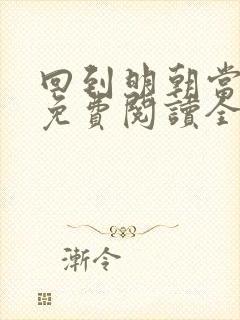 回到明朝當
免費閱讀全
漸令